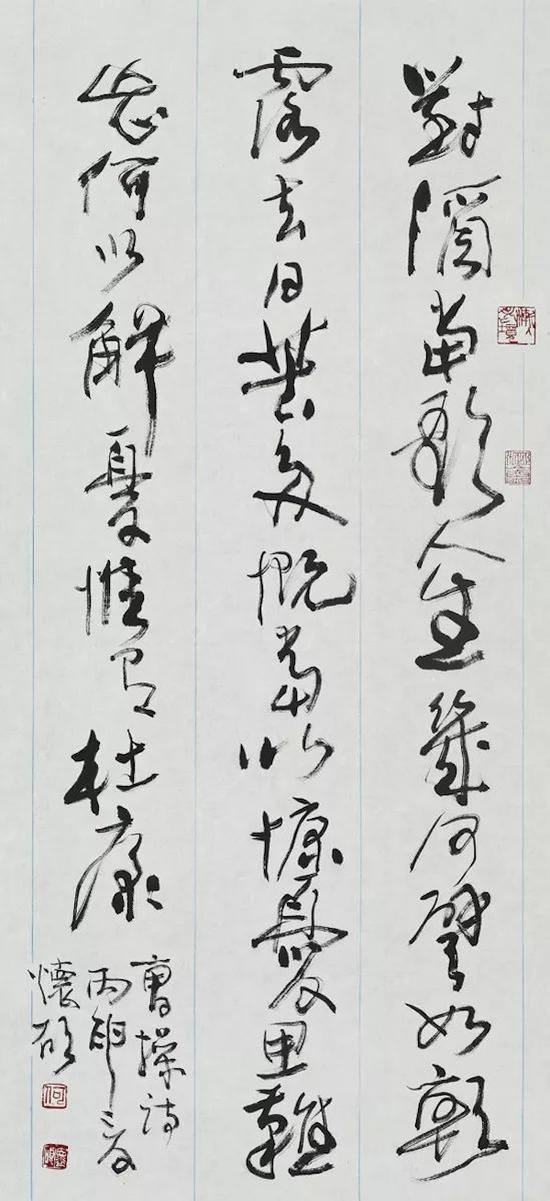 對酒當歌人生幾何譬如朝
露去日苦多慨當以慷憂思難
忘何以解憂惟有杜康
曹操詩
丙申
懷碩
何